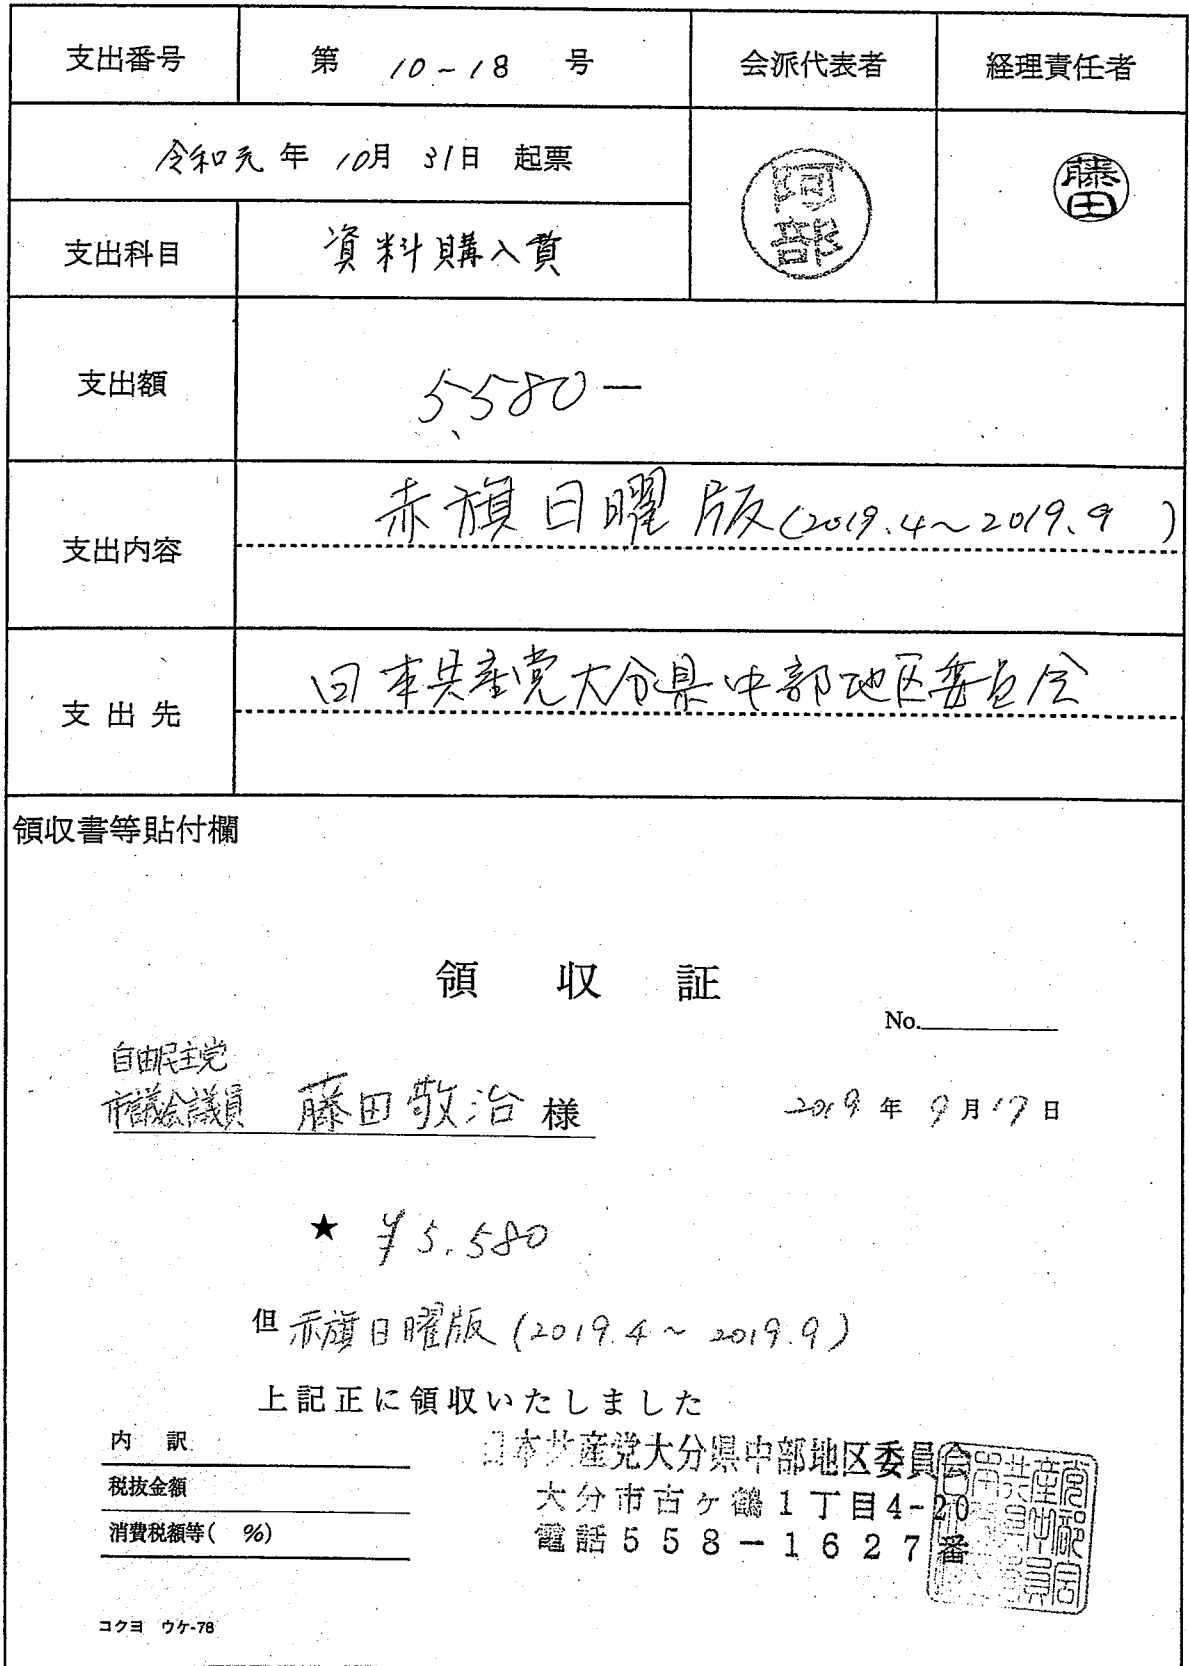 支出番号 第 10-18 号 会派代表者 経理責任者
令和元年 10月 31日 起票
阿部
藤田
支出科目 資料購入費
支出額 5,580ー
支出内容 赤旗日曜版(2019.4～2019.9)
支出先 日本共産党大分県中部地区委員会
領収書等貼付欄
領収証
No.
自由民主党
市議会議員 藤田敬治様 2019年 9月17日
★ ¥5,580
但 赤旗日曜版(2019.4～2019.9)
上記正に領収いたしました
内訳
税抜金額
消費税額等( %)
日本共産党大分県中部地区委員会
大分市古ヶ鶴1丁目4-20
電話558-1627番
コクヨ ウケ-78